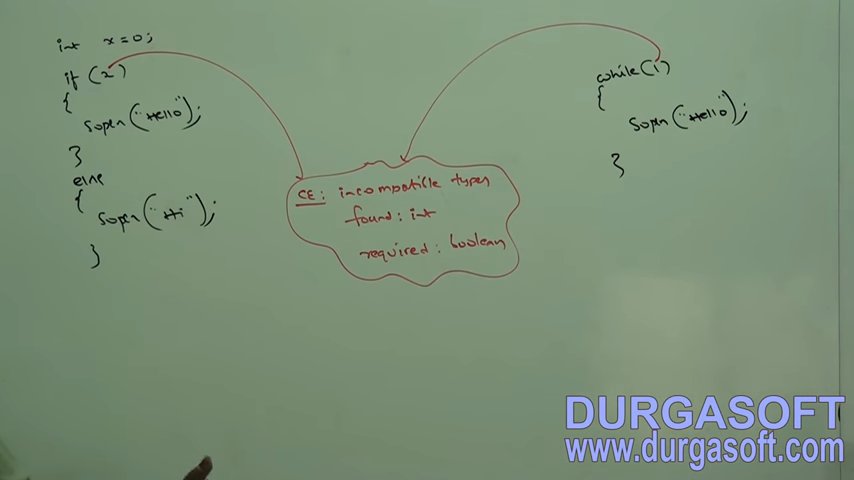 int x=0;
if (x)
{
Sopln("Hello");
}
else
{
Sopln("Hi");
}
CE: incompatible types
found: int
required: boolean
while(1)
{
Sopln("Hello");
}
DURGASOFT
www.durgasoft.com